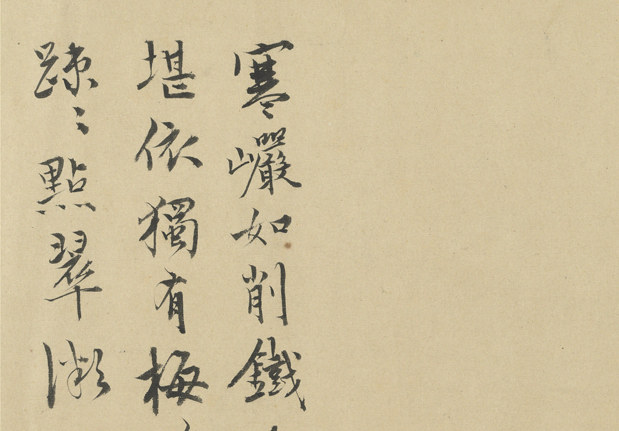 寒巖如削鐵
堪依獨有梅
踈〻點翠漵